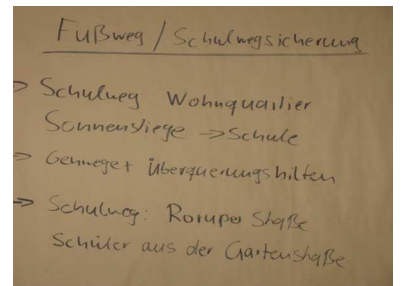 Fußweg / Schulwegsicherung
→ Schulweg Wohnquartier
Sonnenstiege → Schule
→ Gehwege + Überquerungshilfen
→ Schulweg: Roruper Straße
Schüler aus der Gartenstraße